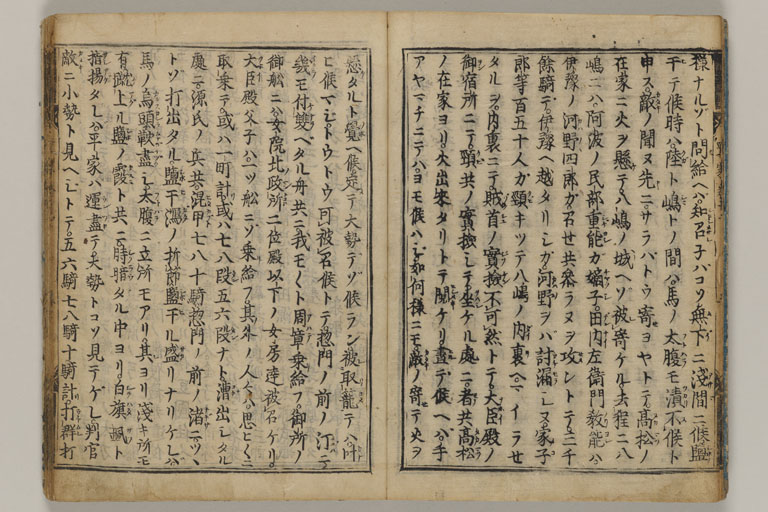 様ナルゾト問給ヘハ知召子バコソ無下ニ浅間ニ候塩
干テ候時ハ陸ト嶋トノ間ハ馬ノ太腹モ漬不候ト
申ス敵ノ聞ヌ先ニサラバトウ寄ヨヤトテ高松ノ
在家ニ火ヲ懸テ八嶋ノ城ヘソ被寄ケル去程ニ八
嶋ニハ阿波ノ民部重能カ嫡子田内左衛門教能ハ
伊豫ノ河野四郎カ召セ共参ラヌヲ攻ントテ三千
餘騎テ伊豫ヘ越タリシガ河野ヲハ討漏シヌ家子
郎等百五十人カ頸キツテ八嶋ノ内裏ヘマイラセ
タルヲ内裏ニテ賊首ノ實撿不可然トテ大臣殿ノ
御宿所ニテ頸共ノ實撿シテ坐ケル處ニ者共高松
ノ在家ヨリ火出来タリトテ聞ケリ晝テ候ヘハ手
アヤマチニテハヨモ候ハジ如何様ニモ敵ノ寄テ火ヲ
懸タルト覺ヘ候定テ大勢テゾ候ラン被取籠テハ叶
ヒ候マジトウトウ可被召候トテ惣門ノ前ノ汀ニ
幾モ付雙ヘタル舟共ニ我モ我モト周章乗給フ御所ノ
御舩ニハ女院北政所二位殿以下ノ女房達被召ケリ
大臣殿父子ハ一ツ舩ニゾ乗給フ其外ノ人々思ヒ〱ニ
取乗テ或ハ一町計或ハ七八段五六段ナト漕出シタル
處ニ源氏ノ兵共混甲七八十騎惣門ノ前ノ渚ニツヽ
トソ打出タル塩干潟ノ折節塩干ル盛リナリケレハ
馬ノ烏頭鞦盡シ太腹ニ立所モアリ其ヨリ浅キ所モ
有蹴上ル塩ノ霞ト共ニ時晴タル中ヨリ白旗颯ト
指揚タレハ平家ハ運盡テ大勢トコソ見テゲレ判官
敵ニ小勢ト見ヘジトテ五六騎七八騎十騎計打群打